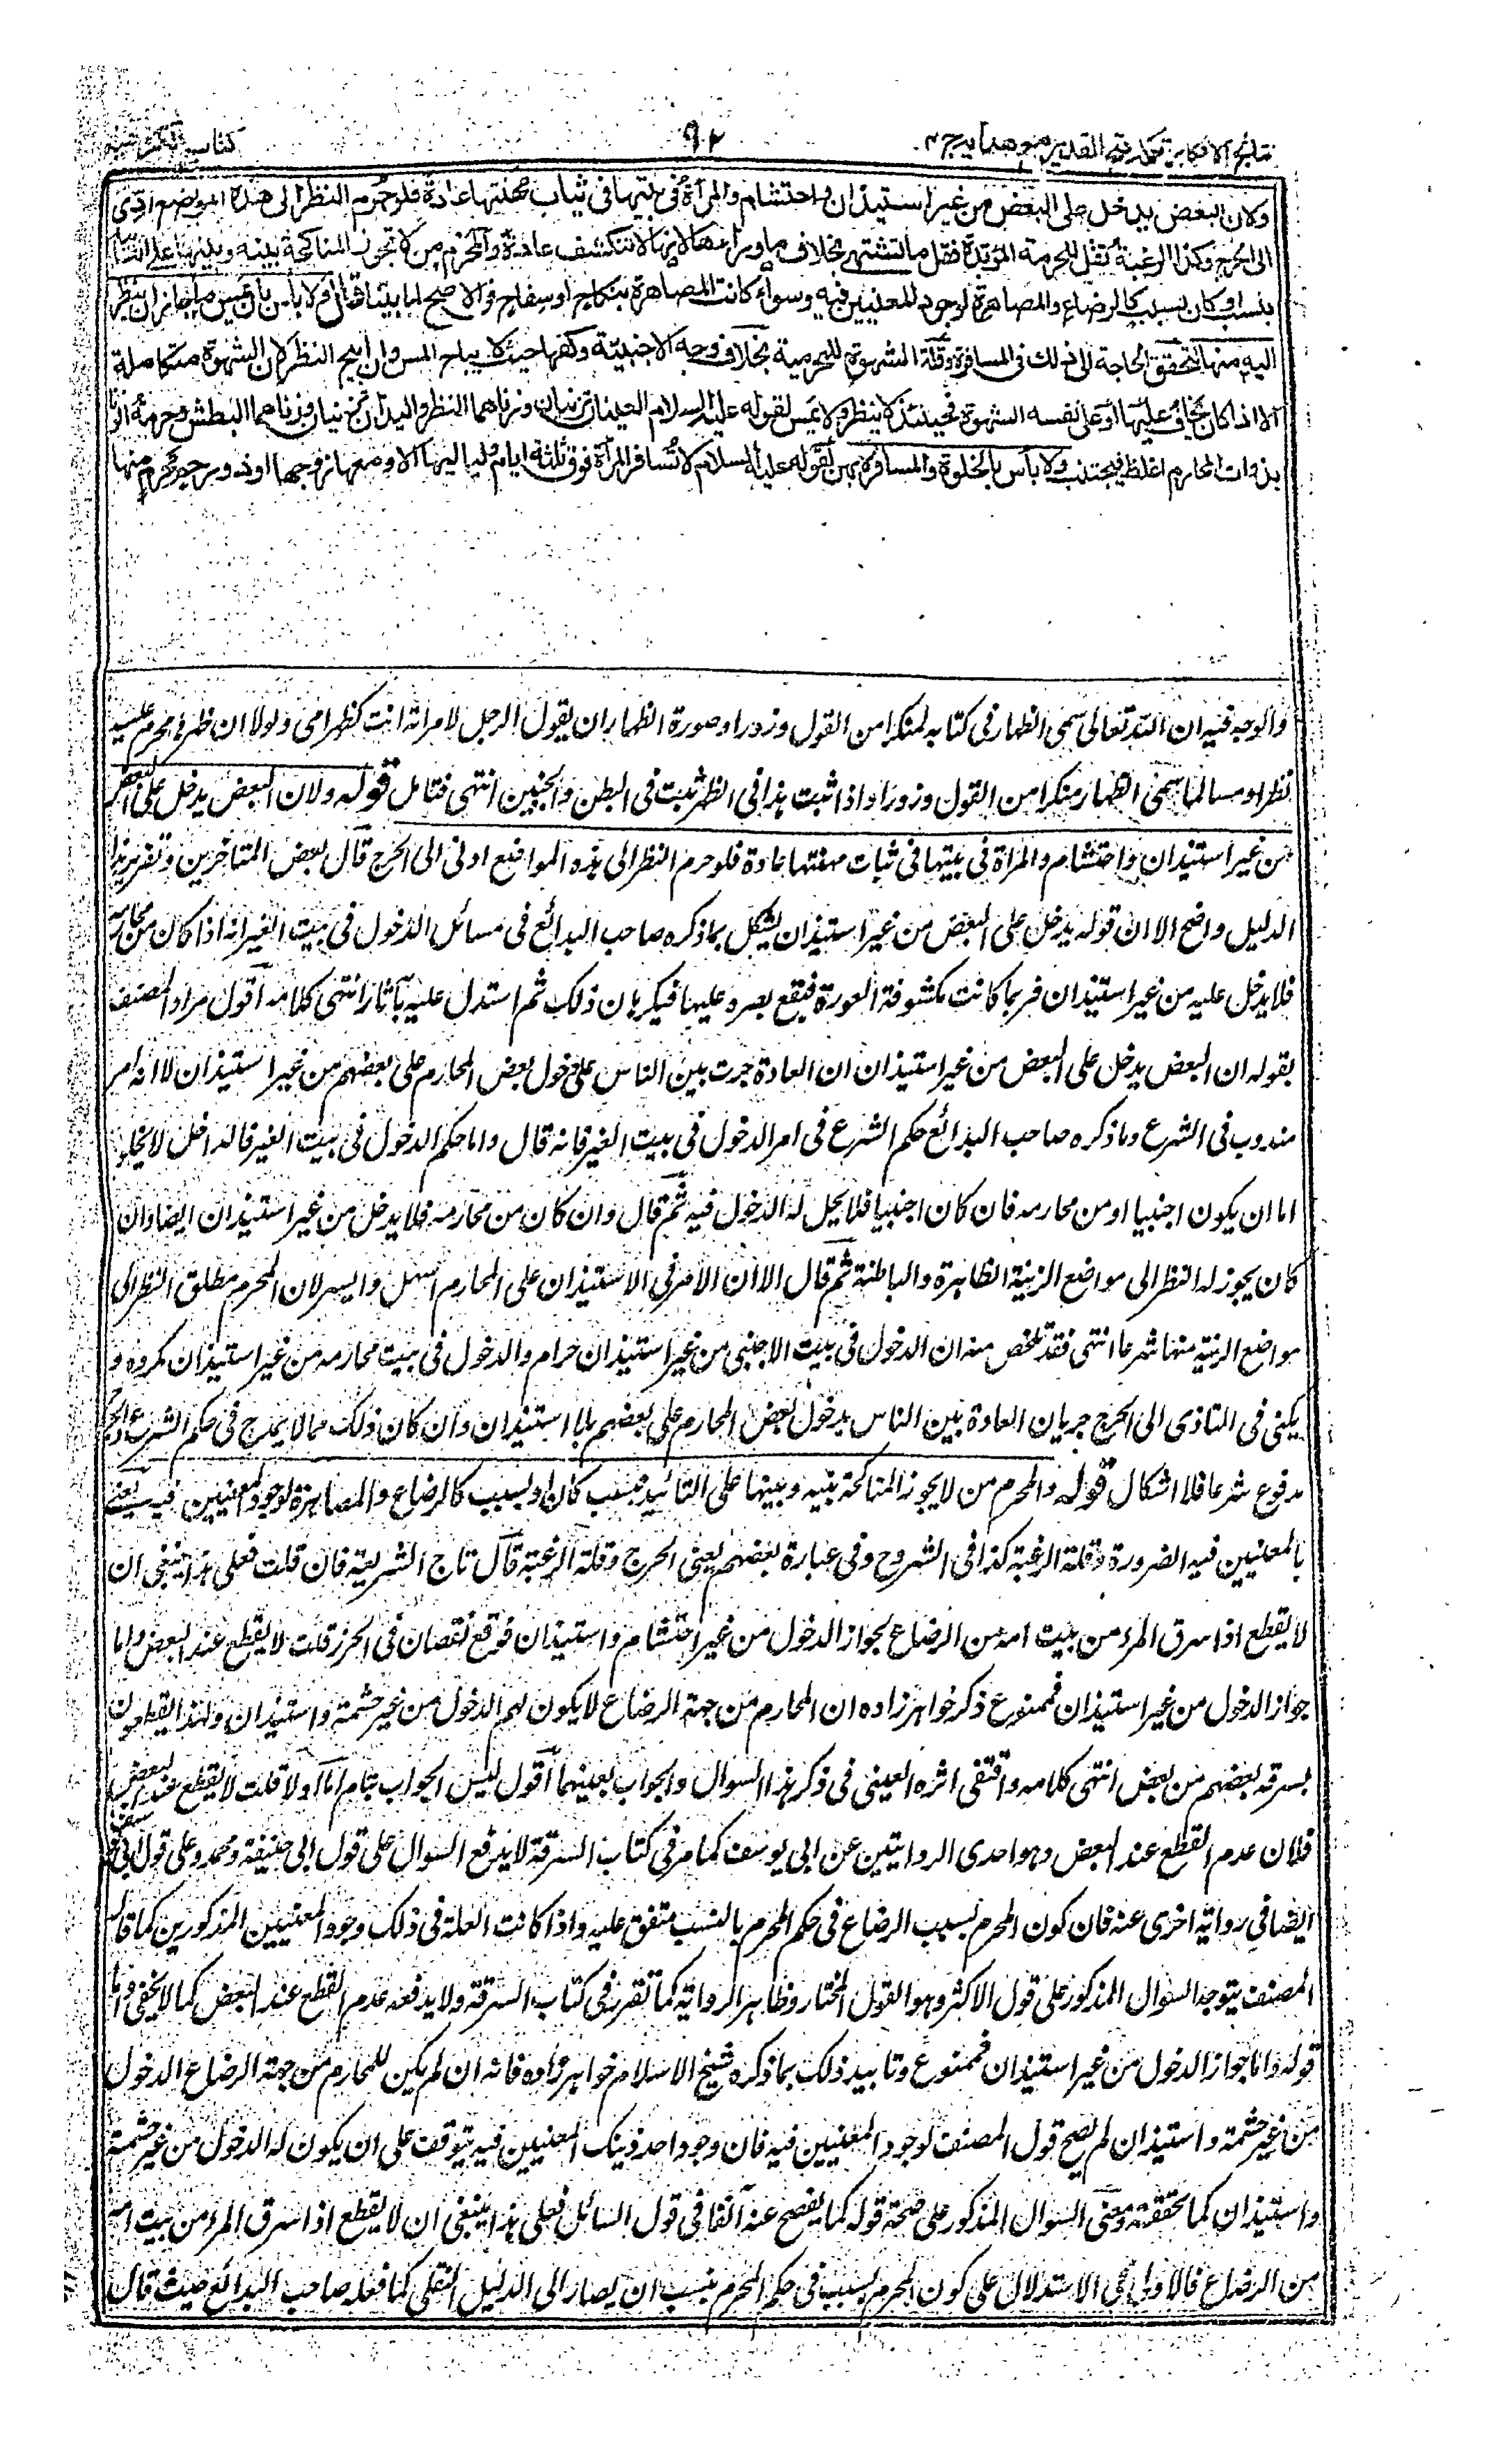 نتائج الافكار تكملة فتح القدير مع هدايه ج ٤
٩٢
كتاب الكراهية
ولان البعض يدخل على البعض من غير استيذان واحتشام والمرأة فى بيتها فى ثياب مهنتها عادة فلو حرم النظر الى هذه المواضع ادى
الى الحرج وكذا الرغبة تقل للحرمة المؤبدة فقل ما تشتهى بخلاف ما وراءها لانها لا تنكشف عادة والمحرم من لا تجوز المناكحة بينه وبينها على التابيد
بنسب او كان بسبب كالرضاع والمصاهرة لوجود المعنيين فيه وسواء كانت المصاهرة بنكاح او سفاح فى الاصح لما بينا قال ولا باس بان يمس ما جاز ان ينظر
اليه منها لتحقق الحاجة الى ذلك فى المسافرة وقلة الشهوة للمحرمية بخلاف وجه الاجنبية وكفها حيث لا يباح المس وان ابيح النظر لان الشهوة متكاملة
الا اذا كان يخاف عليها او على نفسه الشهوة فحينئذ لا ينظر ولا يمس لقوله عليه السلام العينان تزنيان وزناهما النظر واليدان تزنيان وزناهما البطش وحرمة الزنا
بذوات المحارم اغلظ فيجتنب ولا بأس بالخلوة والمسافرة بهن لقوله عليه السلام لا تسافر المرأة فوق ثلثة ايام ولياليها الا ومعها زوجها او ذو رحم محرم منها
والوجه فيه ان الله تعالى سمى الظهار فى كتابه منكرا من القول وزورا وصورة الظهار ان يقول الرجل لامرأته انت كظهر امى ولولا ان ظهرها محرم عليه
نظرا ومسا لما سمى الظهار منكرا من القول وزورا واذا ثبت هذا فى الظهر ثبت فى البطن والجنبين انتهى فتامل قوله ولان البعض يدخل على البعض
من غير استيذان واحتشام والمرأة فى بيتها فى ثياب مهنتها عادة فلو حرم النظر الى هذه المواضع ادى الى الحرج قال بعض المتاخرين وتقرير هذا
الدليل واضح الا ان قوله يدخل على البعض من غير استيذان يشكل بما ذكره صاحب البدائع فى مسائل الدخول فى بيت الغير انه اذا كان من محارمه
فلا يدخل عليه من غير استيذان فربما كانت مكشوفة العورة فيقع بصره عليها فيكرهان ذلك ثم استدل عليه بآثار انتهى كلامه اقول مراد المصنف
بقوله ان البعض يدخل على البعض من غير استيذان ان العادة جرت بين الناس على دخول بعض المحارم على بعضهم من غير استيذان لا انه امر
مندوب فى الشرع وما ذكره صاحب البدائع حكم الشرع فى امر الدخول فى بيت الغير فانه قال واما حكم الدخول فى بيت الغير فالداخل لا يخلو
اما ان يكون اجنبيا او من محارمه فان كان اجنبيا فلا يحل له الدخول فيه ثم قال وان كان من محارمه فلا يدخل من غير استيذان ايضا وان
كان يجوز له النظر الى مواضع الزينة الظاهرة والباطنة ثم قال الا ان الامر فى الاستيذان على المحارم اسهل وايسر لان المحرم مطلق النظر الى
مواضع الزينة منها شرعا انتهى فقد تلخص منه ان الدخول فى بيت الاجنبى من غير استيذان حرام والدخول فى بيت محارمه من غير استيذان مكروه و
يكفى فى التاذى الى الحرج جريان العادة بين الناس بدخول بعض المحارم على بعضهم بلا استيذان وان كان ذلك مما لا يمدح فى حكم الشرع والحرج
مدفوع شرعا فلا اشكال قوله والمحرم من لا يجوز المناكحة بينه وبينها على التابيد بنسب كان او بسبب كالرضاع والمصاهرة لوجود المعنيين فيه يعنى
بالمعنيين فيه الضرورة وقلة الرغبة كذا فى الشروح وفى عبارة بعضهم يعنى الحرج وقلة الرغبة قال تاج الشريعة فان قلت فعلى هذا ينبغى ان
لا يقطع اذا سرق المرء من بيت امه من الرضاع لجواز الدخول من غير احتشام واستيذان فوقع نقصان فى الحرز قلت لا يقطع عند البعض واما
جواز الدخول من غير استيذان فممنوع ذكر خواهرزاده ان المحارم من جهة الرضاع لا يكون لهم الدخول من غير حشمة واستيذان ولهذا يقطعون
بسرقة بعضهم من بعض انتهى كلامه واقتفى اثره العينى فى ذكر هذا السوال والجواب بعينهما اقول ليس الجواب بتام اما اولا قلت لا يقطع عند البعض
فلان عدم القطع عند البعض وهو احدى الروايتين عن ابى يوسف كما مر فى كتاب السرقة لا يدفع السوال على قول ابى حنيفة ومحمد وعلى قول ابى يوسف
ايضا فى رواية اخرى عنه فان كون المحرم بسبب الرضاع فى حكم المحرم بالنسب متفق عليه واذا كانت العلة فى ذلك وجود المعنيين المذكورين كما قاله
المصنف يتوجه السوال المذكور على قول الاكثر وهو القول المختار وظاهر الرواية كما تقرر فى كتاب السرقة ولا يدفعه عدم القطع عند البعض كما لا يخفى واما
قوله واما جواز الدخول من غير استيذان فممنوع وتاييد ذلك بما ذكره شيخ الاسلام خواهرزاده فانه ان لم يكن للمحارم من جهة الرضاع الدخول
من غير حشمة واستيذان لم يصح قول المصنف لوجود المعنيين فيه فان وجود احد ذينك المعنيين فيه يتوقف على ان يكون له الدخول من غير حشمة
واستيذان كما تحققته ومبنى السوال المذكور على صحة قوله كما يفصح عنه آنفا فى قول السائل فعلى هذا ينبغى ان لا يقطع اذا سرق المرء من بيت امه
من الرضاع فالاولى فى الاستدلال على كون المحرم بسبب فى حكم المحرم بنسب ان يصار الى الدليل النقلى كما فعله صاحب البدائع حيث قال